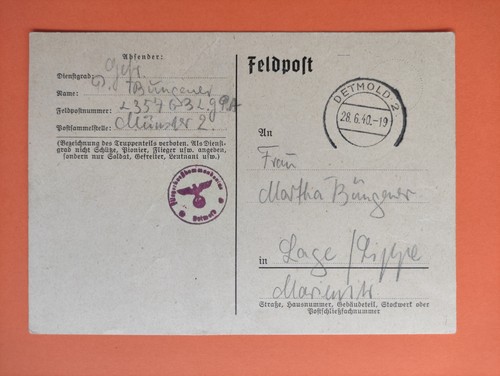 Absender:
Dienstgrad: Gefr.
Name: Büngener
Feldpostnummer: L 35763 Lg PA
Postsammelstelle: Münster 2.
(Bezeichnung des Truppenteils verboten. Als Dienst-
grad nicht Schütze, Pionier, Flieger usw. angeben,
sondern nur Soldat, Gefreiter, Leutnant usw.)
Fliegerhorstkommandantur
Detmold
Feldpost
DETMOLD 2
28.6.40.-19
An
Frau
Martha Büngener
in Lage / Lippe
Marienstr
Straße, Hausnummer, Gebäudeteil, Stockwerk oder
Postschließfachnummer